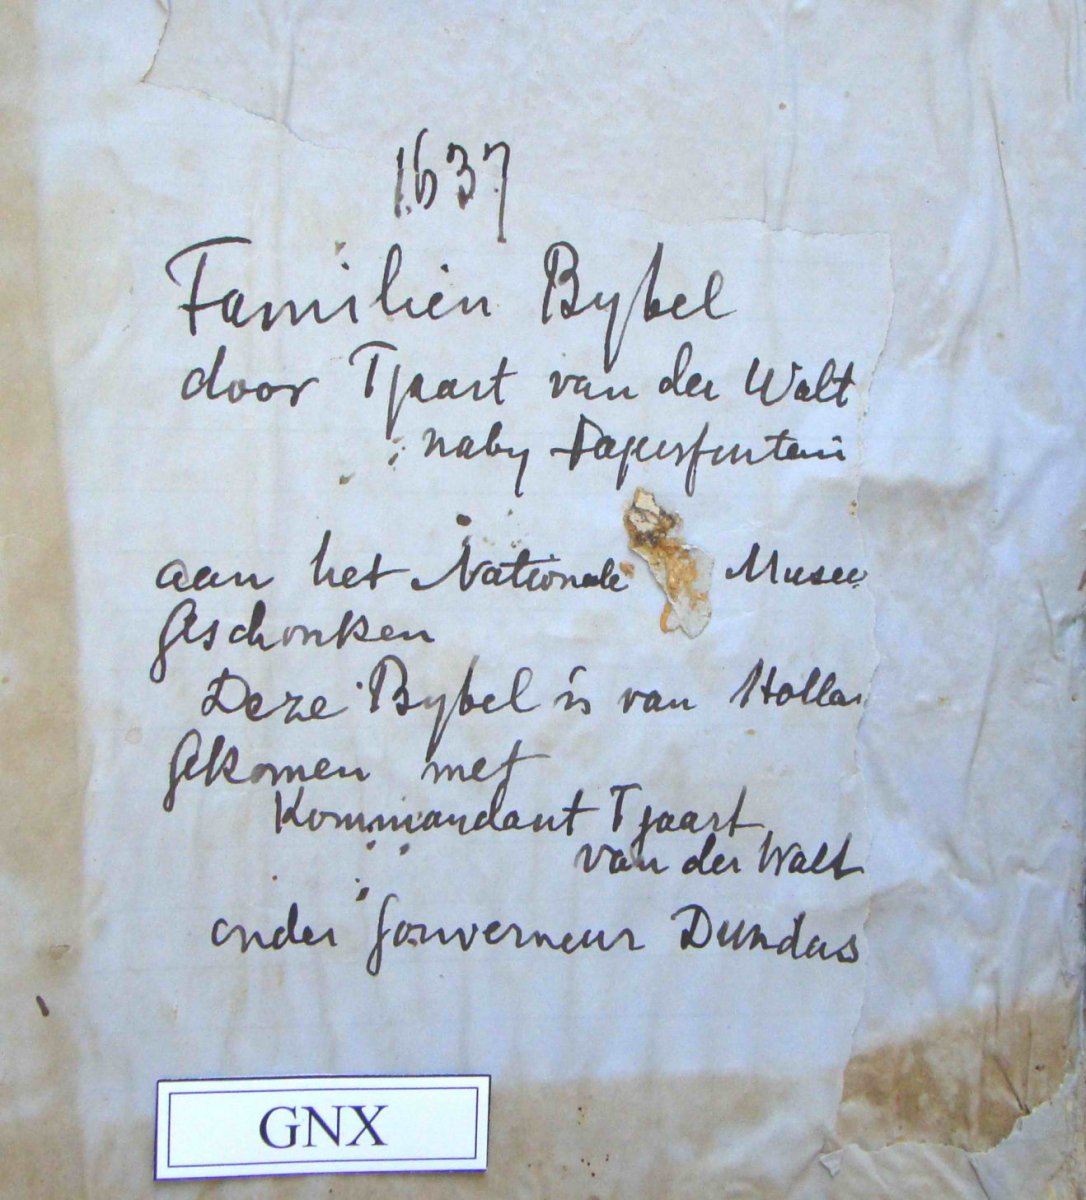 1637
Familien Bybel
door Tjaart van der Walt
naby
aan het Nationale Museu
Geschonken
Deze Bybel is van Hollan
Gekomen met
Kommandant Tjaart
van der Walt
onder Gouverneur Dundas
GNX